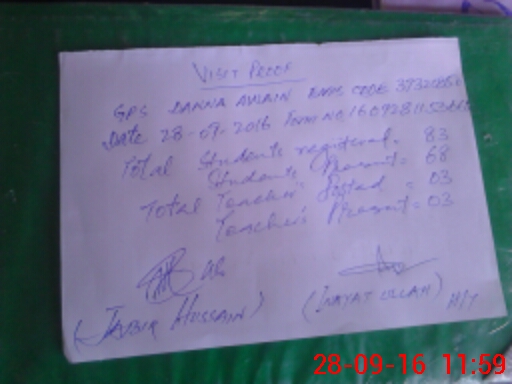 VISIT PROOF
GPS DANNA AWAIN EMIS CODE
Date 28-09-2016 Form NO
Total Students registered = 83
Students Present = 68
Total Teacher's Posted = 03
Teacher's Present = 03
(JABIR HUSSAIN) (INAYAT ULLAH) H/T
28-09-16 11:59